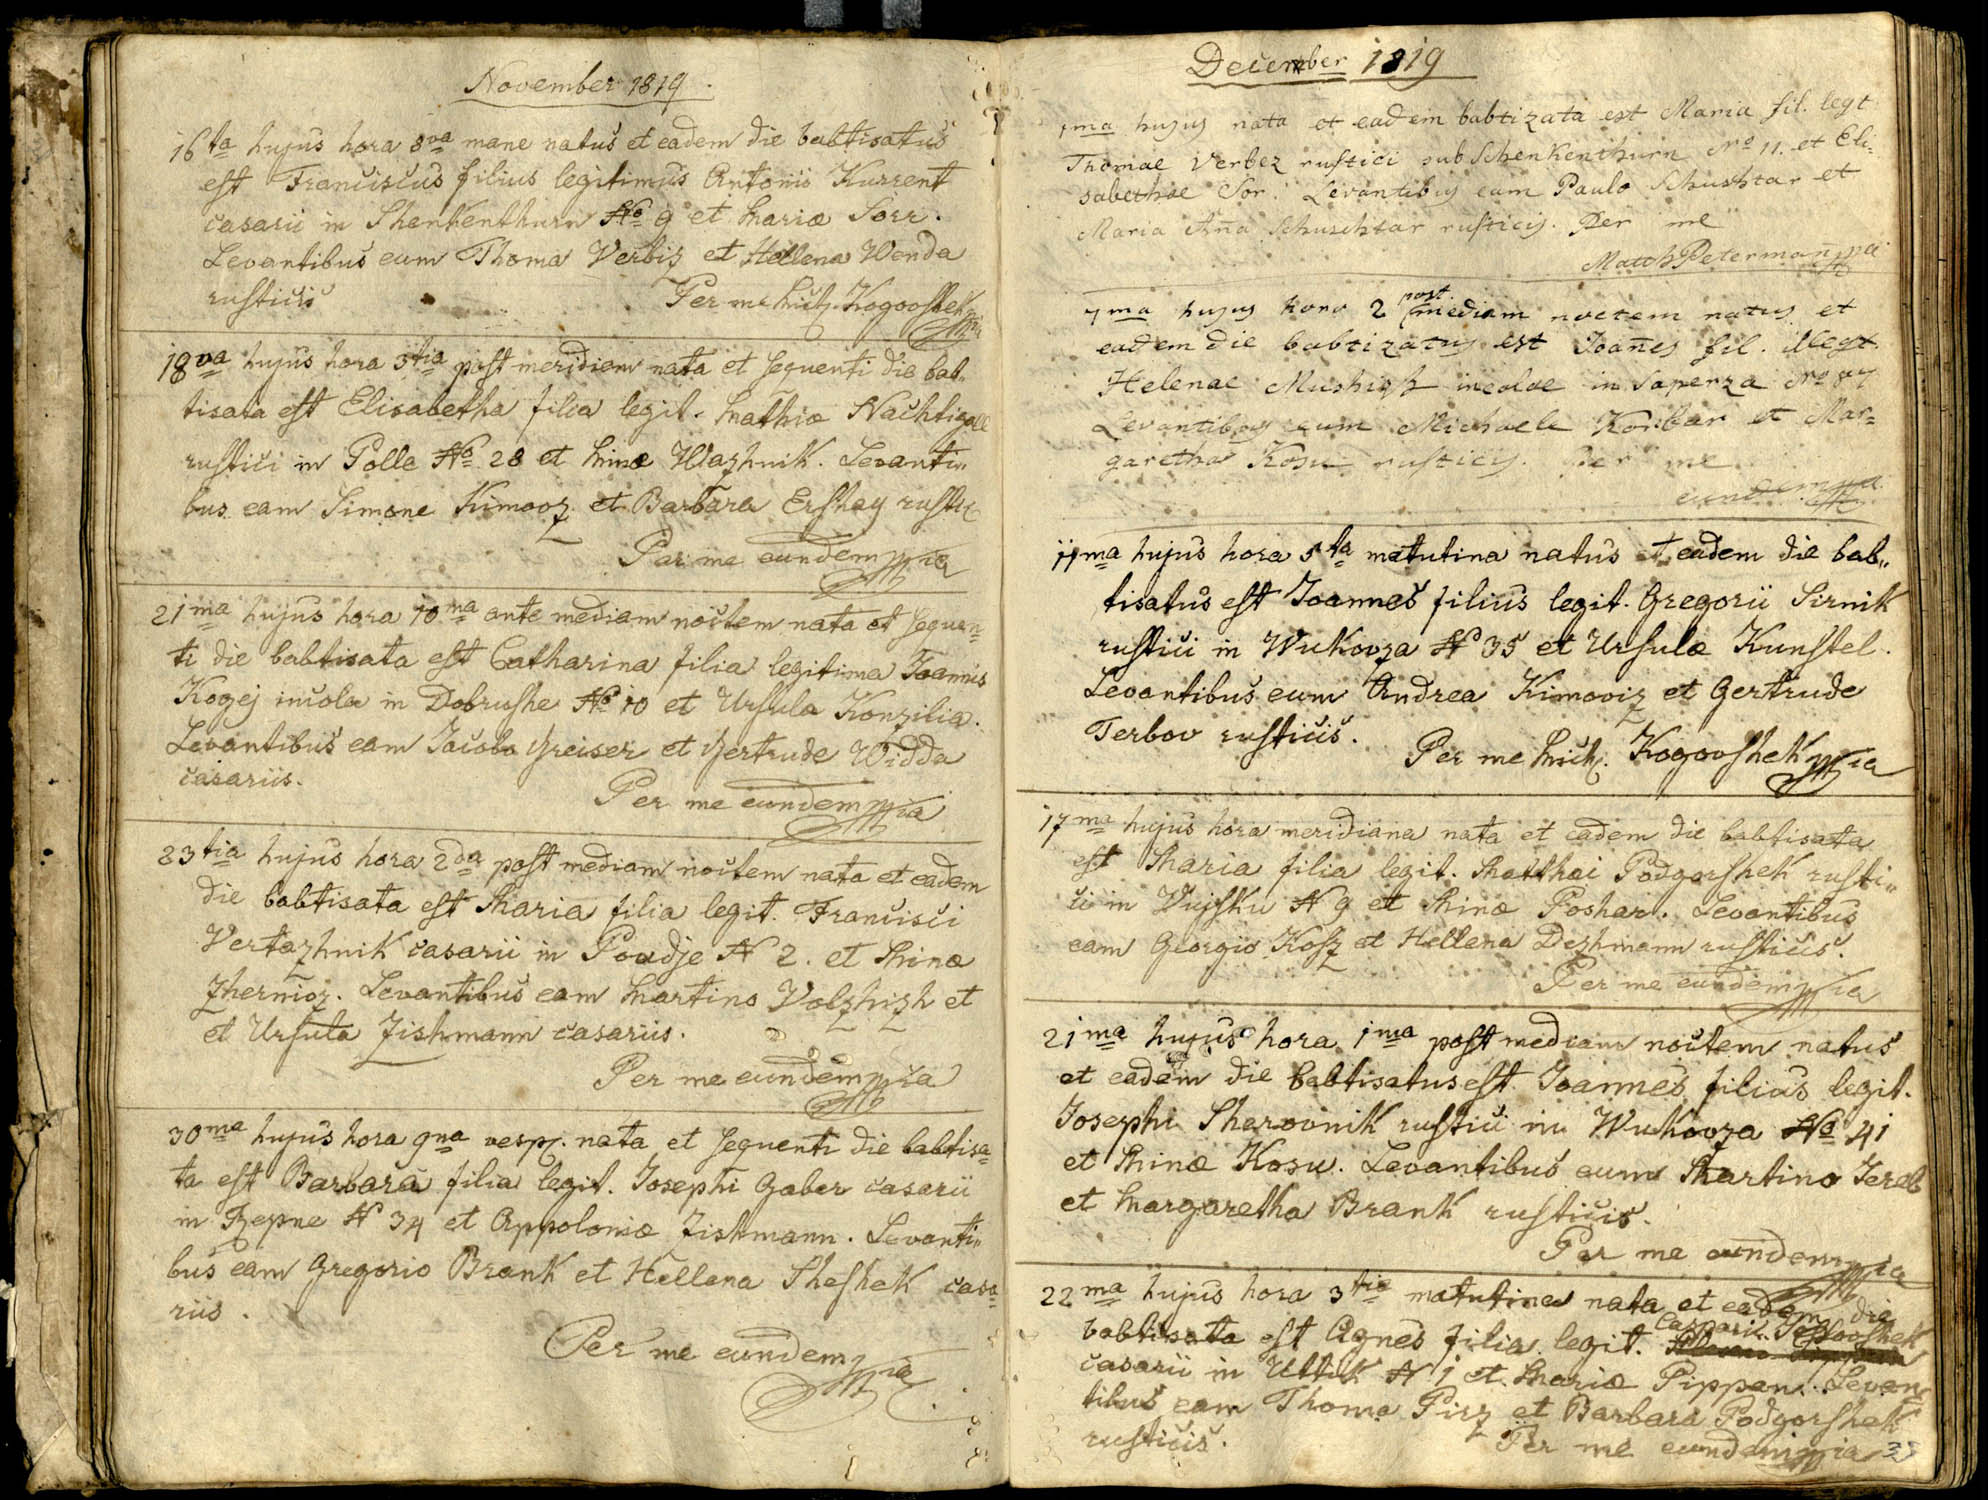 November 1819.
16ta hujus hora 8va mane natus et eadem die babtisatus
est Franciscus filius legitimus Antonii Kurrent
casarii in Shenkenthurn No 9 et Mariæ Sorr.
Levantibus eum Thoma Verbiz et Hellena Wenda
rusticis Per me Mich. Kogovshek mpia
18va hujus hora 3tia post meridiem nata et sequenti die bab„
tisata est Elisabetha filia legit. Mathiæ Nachtigall
rustici in Polle No 28 et Minæ Wazhnik. Levanti„
bus eam Simone Kimovz et Barbara Ershay rustic
Per me eundem mpia
21ma hujus hora 10ma ante mediam noctem nata et sequen„
ti die babtisata est Catharina filia legitima Joannis
Kogej incola in Dobrushe No 10 et Ursula Konzilia.
Levantibus eam Jacobo Greiser et Gertrude Widda
casariis.
Per me eundem mpia
23tia hujus hora 2da post mediam noctem nata et eadem
die babtisata est Maria filia legit. Francisci
Vertazhnik casarii in Povdje N 2. et Minæ
Zhernioz. Levantibus eam Martino Volzhizh et
et Ursula Zishmann casariis.
Per me eundem mpia
30ma hujus hora 9na vesp. nata et sequenti die babtisa„
ta est Barbara filia legit. Josephi Gaber casarii
in Repne N 34 et Appoloniæ Zishmann. Levanti„
bus eam Gregorio Brank et Hellena Sheshek casa„
riis.
Per me eundem mpia
December 1819
1ma hujus nata et eadem babtizata est Maria fil. legt
Thomae Verbez rustici sub Schenkenthurn No 11. et Eli„
sabethae Sor. Levantibus eam Paulo Schushtar et
Maria Aña Schuschtar rusticis. Per me
Matth Petermañ mpia
7ma hujus hora 2 post mediam noctem natus et
eadem die babtizatus est Joañes fil. illegt
Helenae Mushizh incolae in Saperza No 87
Levantibus eum Michaele Koribar et Mar„
garetha Kosu rusticis. Per me
eundem mpia
11ma hujus hora 5ta matutina natus et eadem die bab„
tisatus est Joannes filius legit. Gregorii Sirnik
rustici in Wukovza N 35 et Ursulæ Kunstel.
Levantibus eum Andrea Kimoviz et Gertrude
Terbov rusticis.
Per me Mich. Kogovshek mpia
17ma hujus hora meridiana nata et eadem die babtisata
est Maria filia legit. Matthæi Podgorshek rusti„
ci in Vujsku N 9 et Minæ Poshar. Levantibus
eam Georgio Kosz et Hellena Dezhmann rusticis.
Per me eundem mpia
21ma hujus hora 1ma post mediam noctem natus
et eadem die babtisatus est Joannes filius legit.
Josephi Sherovnik rustici in Wukovza No 41
et Minæ Kosu. Levantibus eum Martino Jereb
et Margaretha Brank rusticis.
Per me eundem mpia
22ma hujus hora 3tia matutina nata et eadem die
babtisata est Agnes filia legit. Caspari
casarii in Uttik N 1 et Mariæ Pippan. Levan„
tibus eam Thoma Pirz et Barbara Podgorshek
rusticis. Per me eundem mpia